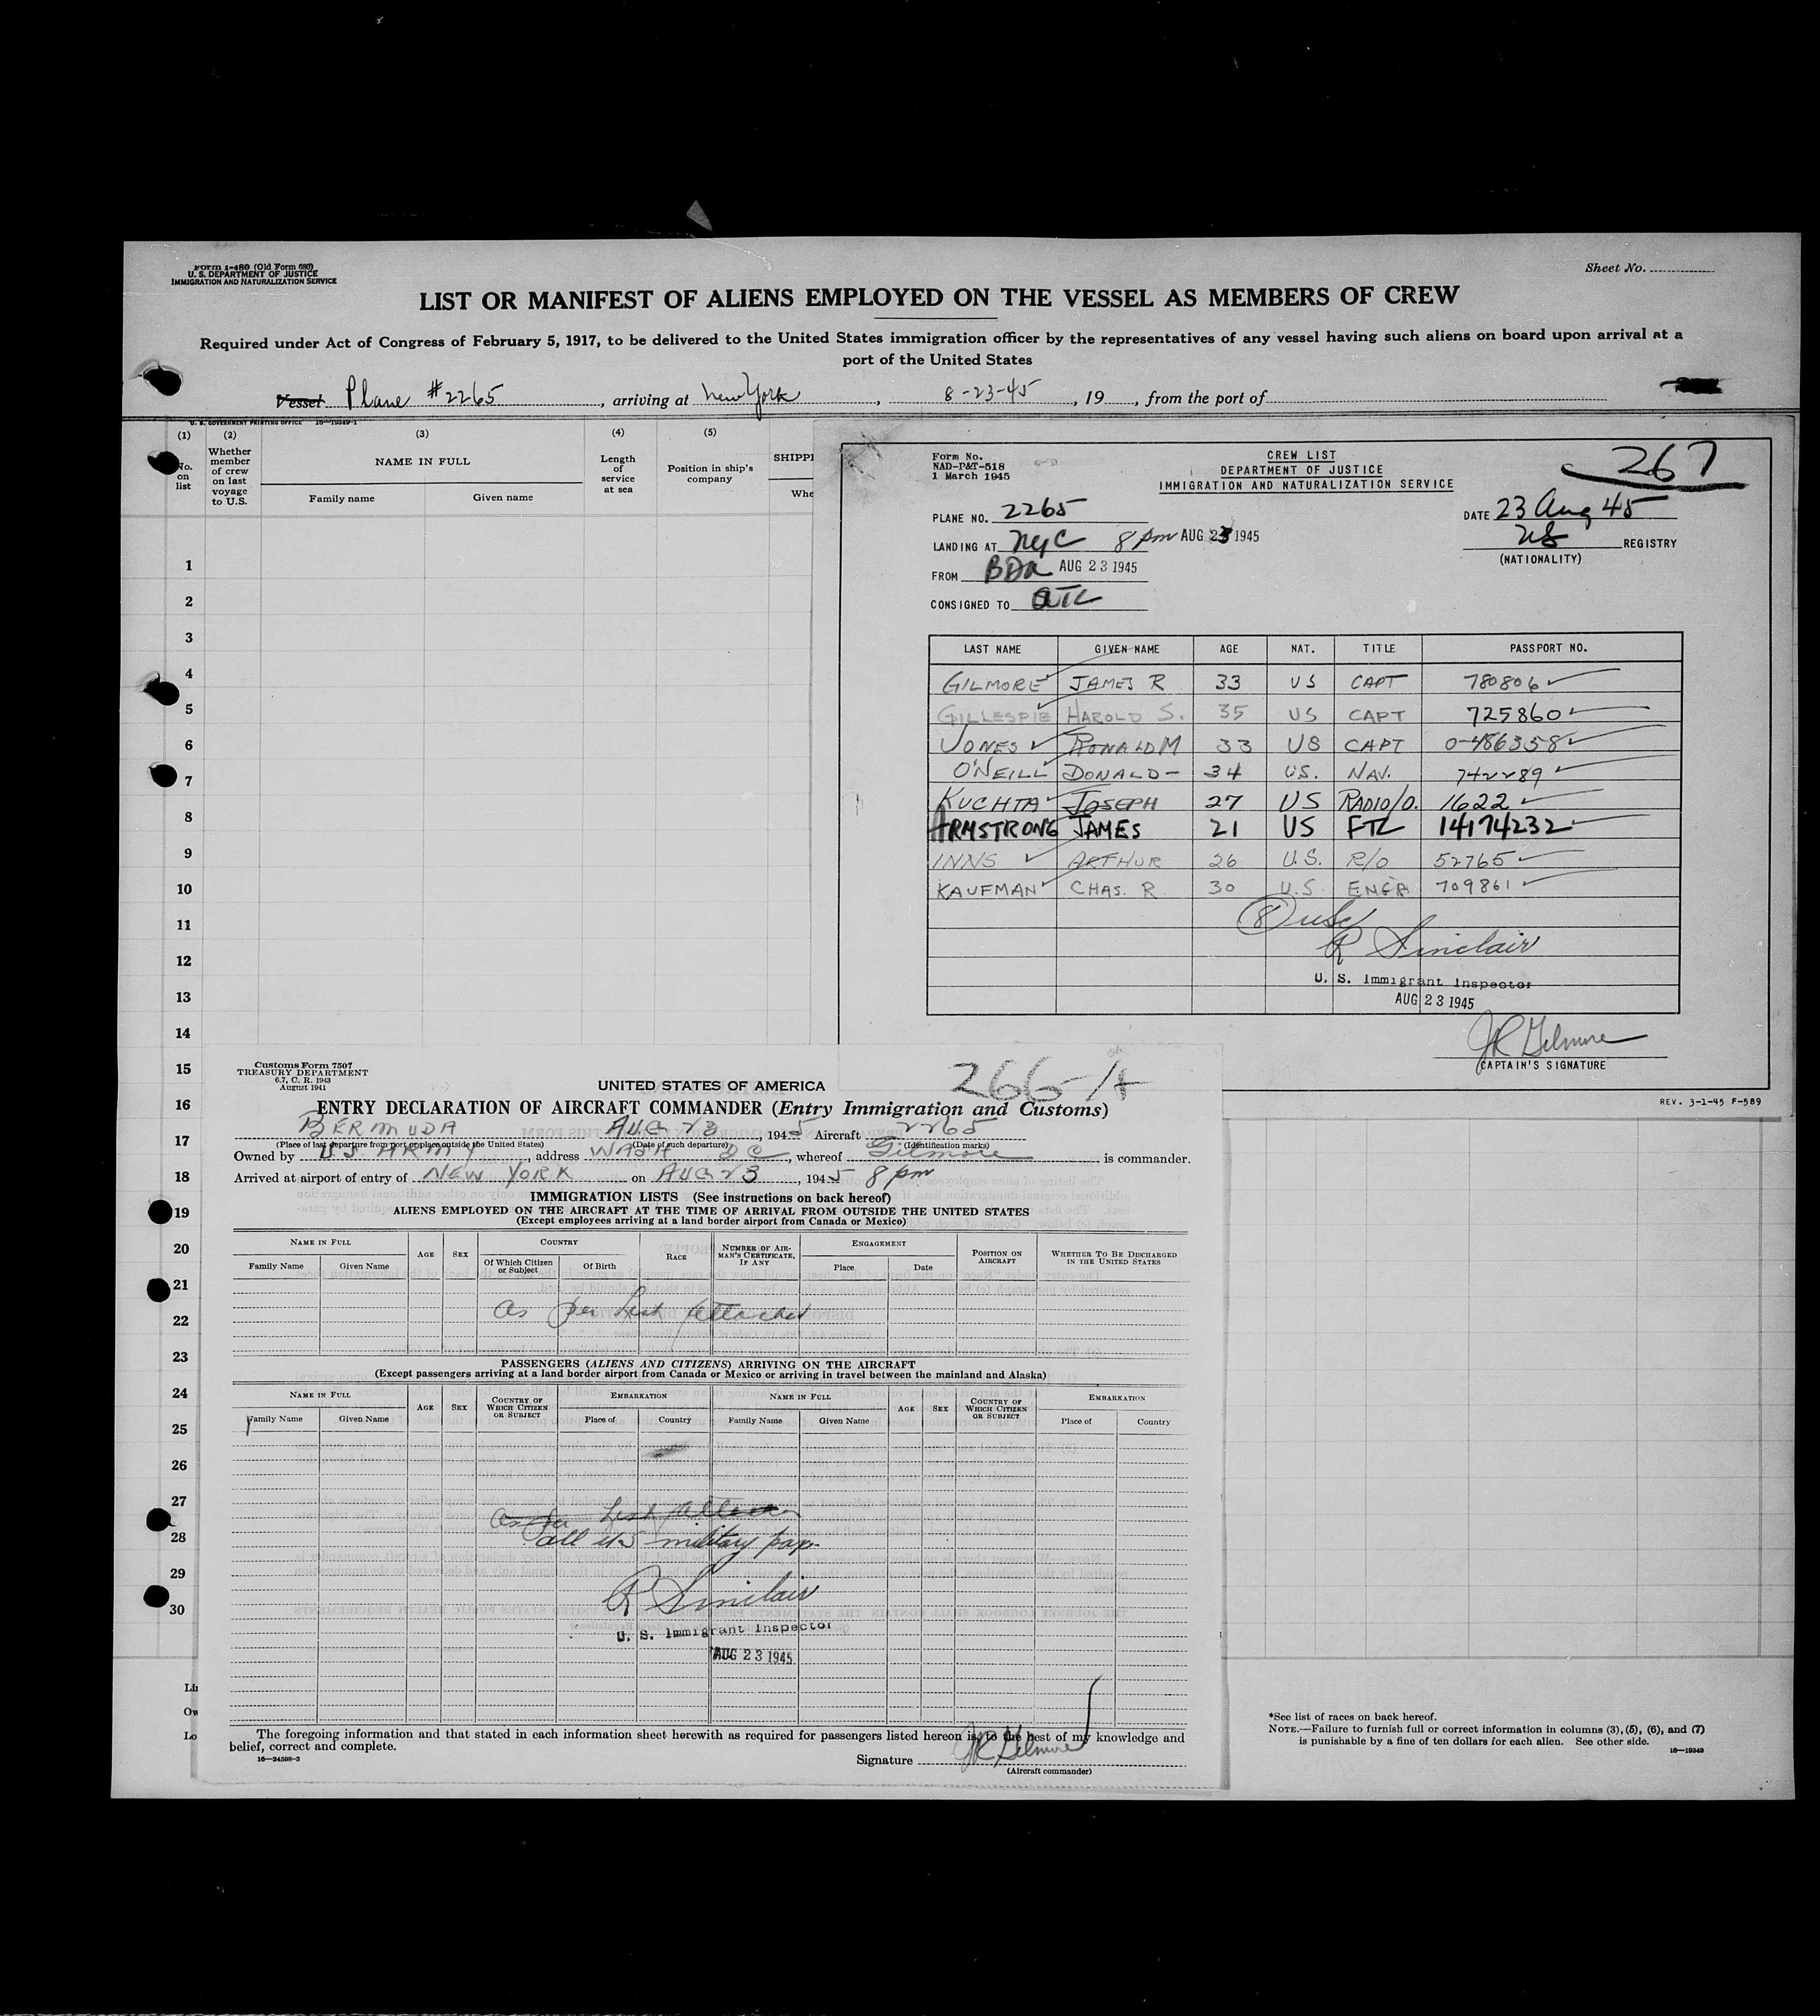 Form I-480 (Old Form 680)
U. S. DEPARTMENT OF JUSTICE
IMMIGRATION AND NATURALIZATION SERVICE
Sheet No.
LIST OR MANIFEST OF ALIENS EMPLOYED ON THE VESSEL AS MEMBERS OF CREW
Required under Act of Congress of February 5, 1917, to be delivered to the United States immigration officer by the representatives of any vessel having such aliens on board upon arrival at a
port of the United States
Vessel Plane #2265, arriving at New York, 8-23-45, 19, from the port of
U. S. GOVERNMENT PRINTING OFFICE 16—19349-1
(1) (2) (3) (4) (5)
No. on list
Whether member of crew on last voyage to U.S.
NAME IN FULL
Family name Given name
Length of service at sea
Position in ship's company
SHIPPI
Whe
1
2
3
4
5
6
7
8
9
10
11
12
13
14
15
16
17
18
19
20
21
22
23
24
25
26
27
28
29
30
Li
Ow
Lo
Form No.
NAD-P&T-518
1 March 1945
CREW LIST
DEPARTMENT OF JUSTICE
IMMIGRATION AND NATURALIZATION SERVICE
267
PLANE NO. 2265
DATE 23 Aug 45
LANDING AT NYC 8 pm AUG 23 1945
US REGISTRY
(NATIONALITY)
FROM BDA AUG 23 1945
CONSIGNED TO ATC
LAST NAME GIVEN NAME AGE NAT. TITLE PASSPORT NO.
GILMORE JAMES R 33 US CAPT 780806
GILLESPIE HAROLD S. 35 US CAPT 725860
JONES RONALD M 33 US CAPT 0-486358
O'NEILL DONALD - 34 U.S. NAV. 742289
KUCHTA JOSEPH 27 US RADIO/O. 1622
ARMSTRONG JAMES 21 US FTC 14174232
INNS ARTHUR 26 U.S. R/O 52765
KAUFMAN CHAS. R 30 U.S. ENGR 709861
(8) USC
R Sinclair
U. S. Immigrant Inspector
AUG 23 1945
JR Gilmore
CAPTAIN'S SIGNATURE
REV. 3-1-45 F-589
Customs Form 7507
TREASURY DEPARTMENT
6.7, C. R. 1943
August 1941
UNITED STATES OF AMERICA
266-A
ENTRY DECLARATION OF AIRCRAFT COMMANDER (Entry Immigration and Customs)
BERMUDA AUG 23, 1945 Aircraft 2265
(Place of last departure from port or place outside the United States) (Date of such departure) (Identification marks)
Owned by US ARMY, address WASH DC, whereof Gilmore is commander.
Arrived at airport of entry of NEW YORK on AUG 23, 1945 8 pm
IMMIGRATION LISTS (See instructions on back hereof)
ALIENS EMPLOYED ON THE AIRCRAFT AT THE TIME OF ARRIVAL FROM OUTSIDE THE UNITED STATES
(Except employees arriving at a land border airport from Canada or Mexico)
NAME IN FULL AGE SEX COUNTRY RACE NUMBER OF AIRMAN'S CERTIFICATE, IF ANY ENGAGEMENT POSITION ON AIRCRAFT WHETHER TO BE DISCHARGED IN THE UNITED STATES
Family Name Given Name Of Which Citizen or Subject Of Birth Place Date
As per List Attached
PASSENGERS (ALIENS AND CITIZENS) ARRIVING ON THE AIRCRAFT
(Except passengers arriving at a land border airport from Canada or Mexico or arriving in travel between the mainland and Alaska)
NAME IN FULL AGE SEX COUNTRY OF WHICH CITIZEN OR SUBJECT EMBARKATION NAME IN FULL AGE SEX COUNTRY OF WHICH CITIZEN OR SUBJECT EMBARKATION
Family Name Given Name Place of Country Family Name Given Name Place of Country
As per List Attached
all US military pax.
R Sinclair
U. S. Immigrant Inspector
AUG 23 1945
The foregoing information and that stated in each information sheet herewith as required for passengers listed hereon is, to the best of my knowledge and
belief, correct and complete.
16—24598-3
Signature JR Gilmore
(Aircraft commander)
*See list of races on back hereof.
NOTE.—Failure to furnish full or correct information in columns (3), (5), (6), and (7)
is punishable by a fine of ten dollars for each alien. See other side.
16—19349